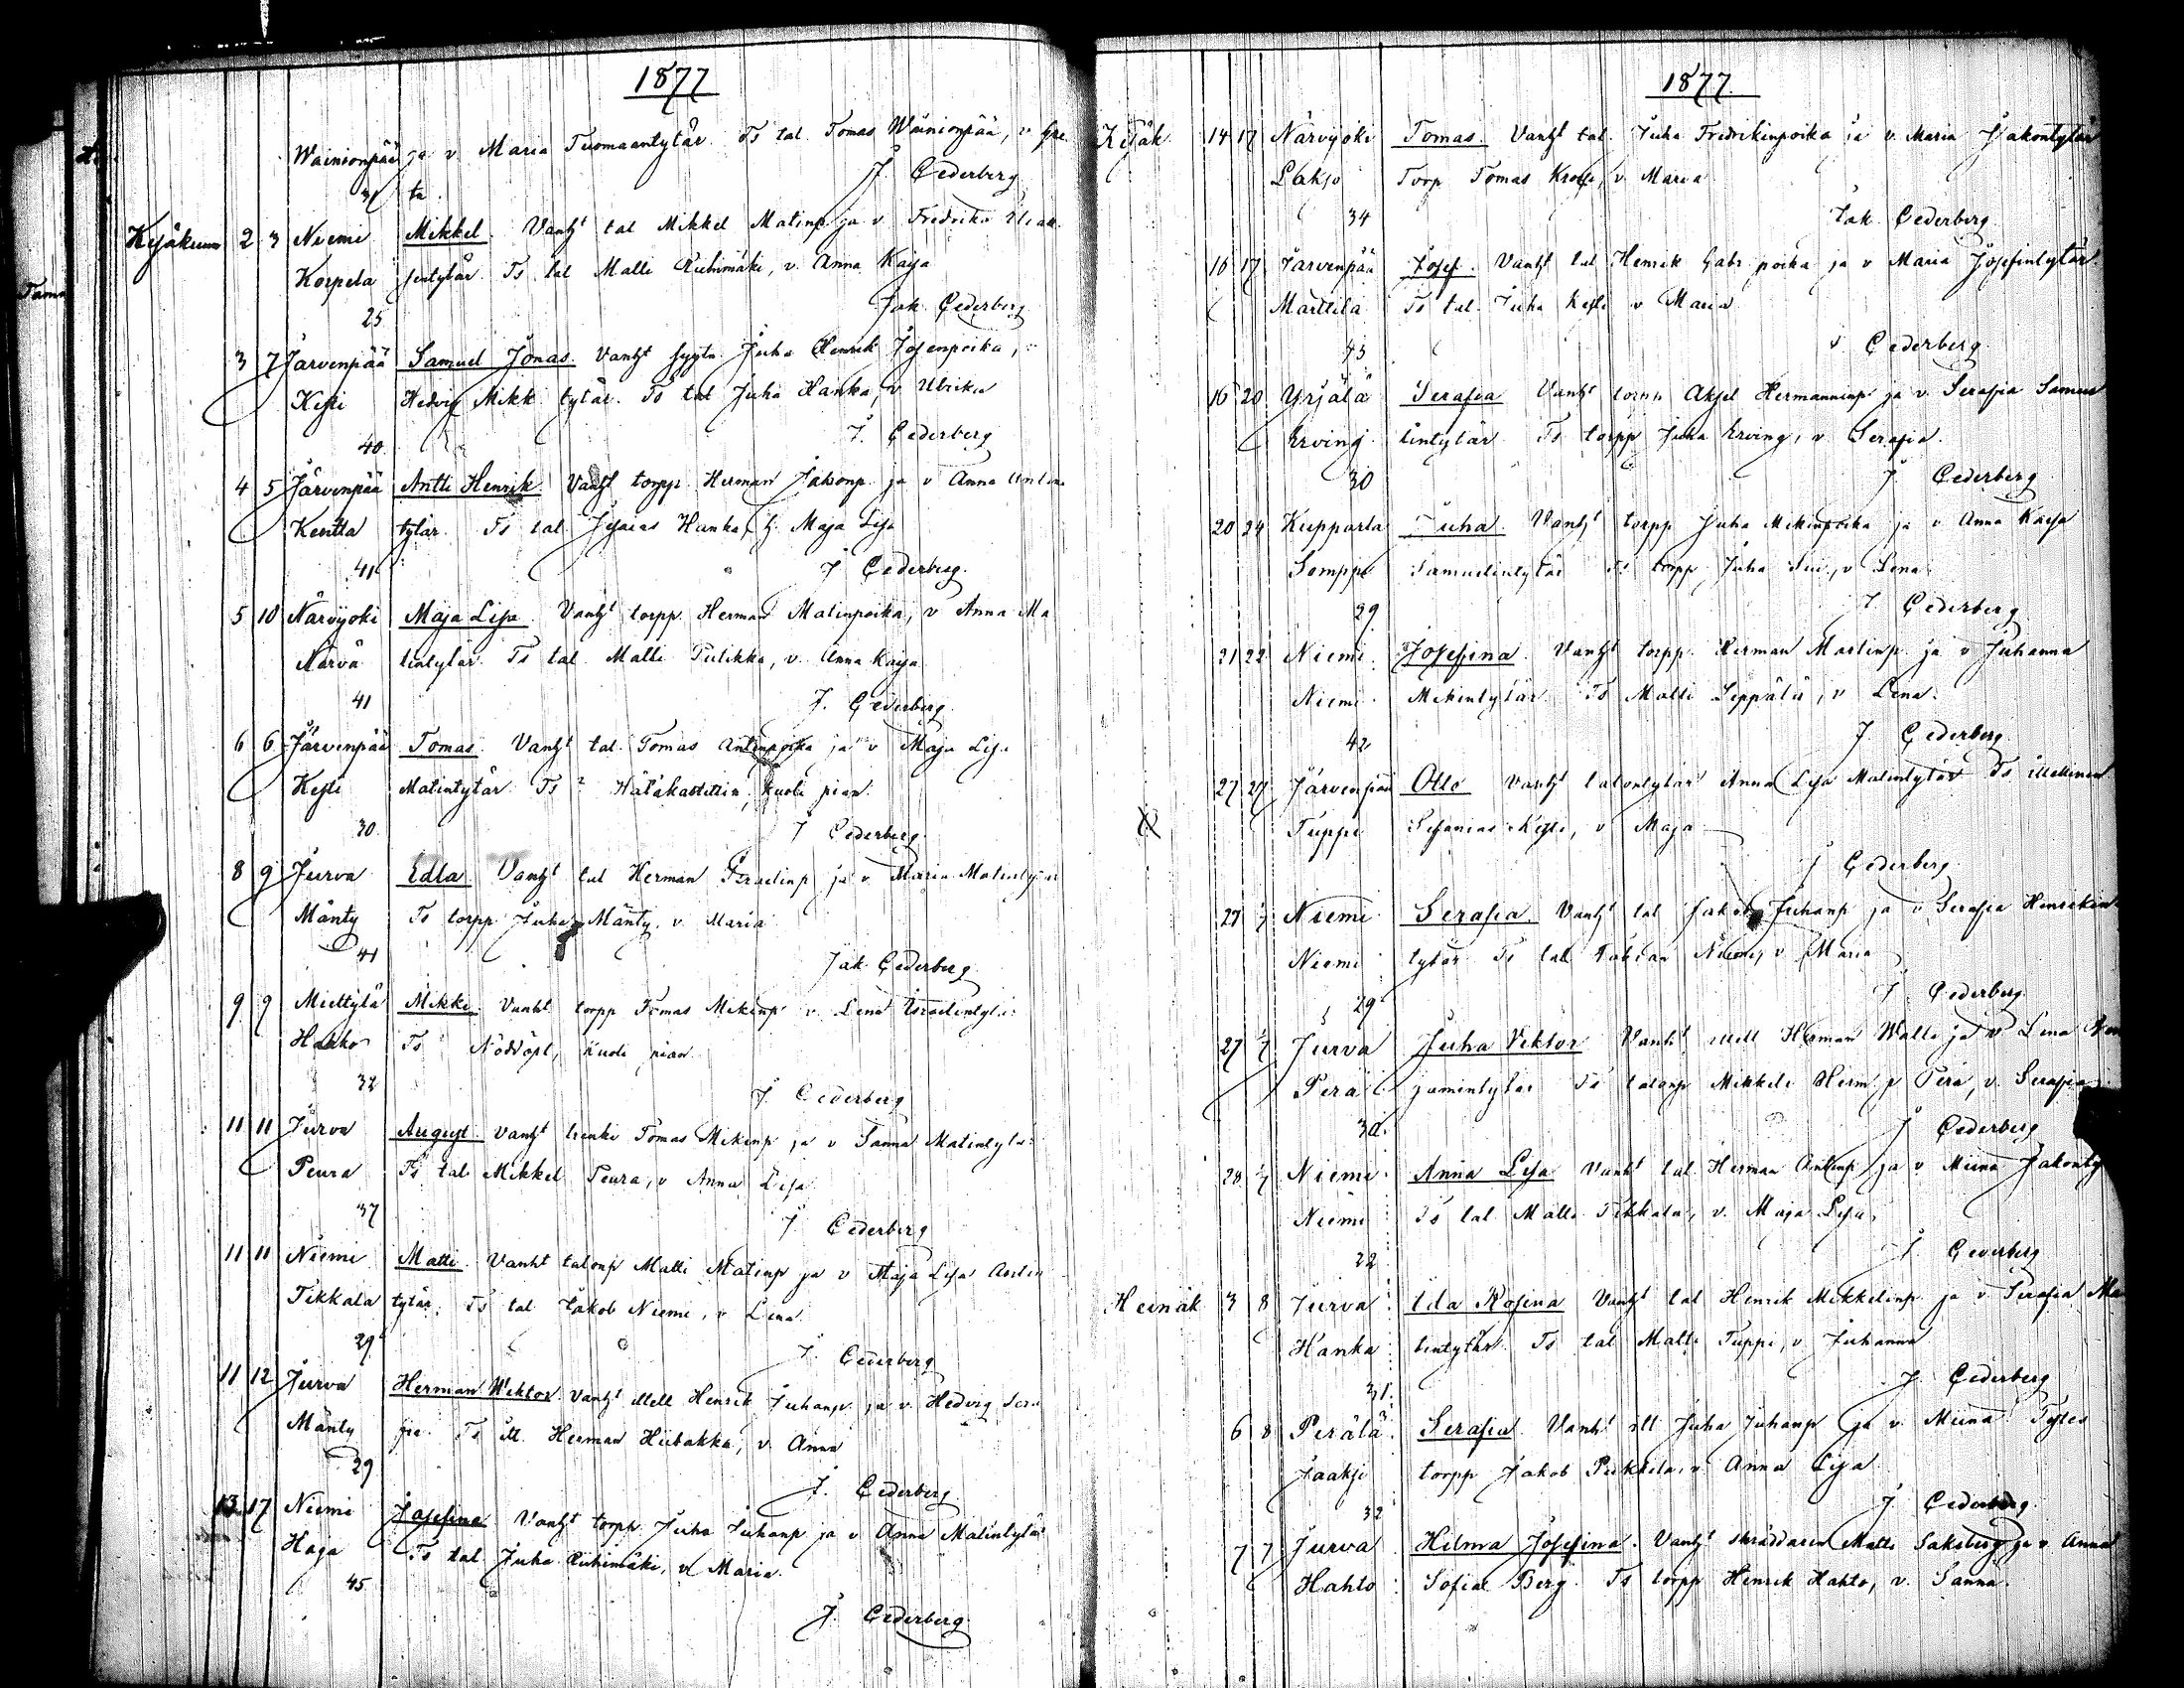 1877
Wainionpää ja v Maria Tuomaantytär. Ts tal. Tomas Wainionpää, v Gre
31 ta.
J. Cederberg
Kesäkuun 2 3 Niemi Mikkel. Vanht tal Mikkel Matinp. ja v. Fredrika
Korpela tytär. Ts tal Matti Riihimäki, v. Anna Kaisa
25 Jak. Cederberg
3 7 Järvenpää Samuel Jonas. Vanht Juha Henrik Josenpoika,
Kesti Hedvig Mikk tytär. Ts tal Juha Hanka, v Ulrika
40 J. Cederberg
4 5 Järvenpää Antti Henrik. Vanht torpp. Herman Jakonp. ja v Anna Antin
Kentta tytär. Ts tal. Jesaias Hanka, Maja Lisa
41 J Cederberg.
5 10 Närvijoki Maja Lisa. Vanht torpp. Herman Matinpoika, v Anna Ma
Närvä tintytär. Ts tal. Matti Tulikka, v. Anna Kaisa
41 J. Cederberg.
6 6 Järvenpää Tomas. Vanht tal. Tomas Antinpoika ja v Maja Lisa
Kesti Matintytär. Ts Hätäkastettiin, kuoli pian.
30. J Cederberg.
8 9 Jurva Edla. Vanht tal Herman Israelinp ja v. Maria Matintytär
Mänty Ts torpp. Juha Mänty, v. Maria
41 Jak Cederberg
9 9 Miettylä Mikki. Vanht torpp Tomas Mikinp v Lena Israelintytär
Hakko Ts Nöddöpt, kuoli pian.
32 J. Cederberg
11 11 Jurva August. Vanht Tomas Mikinp ja v Sanna Matintytär
Peura Ts tal Mikkel Peura, v Anna Lisa
37 J Cederberg
11 11 Niemi Matti. Vanht talonp Matti Matinp ja v Maja Lisa Antin
Tikkala tytär. Ts tal Jakob Niemi, v Lena.
29 J. Cederberg
11 12 Jurva Herman Wiktor. Vanht ittell Henrik Juhanp. ja v. Hedvig Sera
Mänty fia. Ts itt. Herman Hiibakka, v. Anna
29 J. Cederberg
13 17 Niemi Josefina Vanht torpp. Juha Juhanp ja v Anna Matintytär
Haga Ts tal. Juha Riihimäki, v Maria.
45 J. Cederberg
1877.
Kesäk 14 17 Närvijoki Tomas. Vanht tal. Juha Fredrikinpoika ja v. Maria Jakontytär
Lakso Torp Tomas v. Maria
34 Jak. Cederberg
16 17 Järvenpää Josef. Vanht tal Henrik Gabr. poika ja v Maria Josefintytär.
Marttila Ts tal. Juha Kesti v Maria
43 Cederberg
16 20 Yrjälä Serafia Vanht torpp Aksel Hermanninp ja v. Serafia Samue
Erving lintytär. Ts torpp Juha Erving, v Serafia.
30 J Cederberg
20 24 Kupparla Juha. Vanht torpp Juha Mikinpoika ja v Anna Kaisa
Somppi Samuelintytär Ts torpp Juha v Lena.
29 J. Cederberg
21 22 Niemi Josefina. Vanht torpp. Herman Martinp. ja v Juhanna
Niemi. Mikintytär. Ts Matti Seppälä, v Lena.
42 J. Cederberg.
27 27 Järvenpää Otto Vanht talontytär Anna Lisa Matintytär Ts itellinen
Tuppi Sefanias Kesti, v Maja
J Cederberg
27 1/7 Niemi Serafia. Vanht tal Jakob Juhanp ja v. Serafia Henrikin
Niemi tytär Ts tal Fabian Niemi, v Maria
29 J. Cederberg
27 1/7 Jurva Juha Viktor Vanht itell Herman Walli ja v Lena
Perä jamintytär Ts talonp Mikkeli Herm.p Perä, v. Serafia
30. J Cederberg
28 1/7 Niemi Anna Lisa Vanht tal Herman Antinp ja v Miina Jakonty
Niemi Ts tal Matti Tikkala, v. Maja Lisa.
22 J. Cederberg
Heinäk 3 8 Jurva Ida Rosina Vanht tal Henrik Mikkelinp. ja v Serafia Ma
Hanka tintytär. Ts tal Matti Tuppi, v Juhanna
31. J. Cederberg
6 8 Perälä Serafia. Vanht itt Juha Juhanp ja v. Miina. Ts
Jaaksi torpp Jakob Pukkila, v Anna Lisa
32 J Cederberg.
7 7 Jurva Hilma Josefina. Vanht skräddaren Matti Saksberg ja v. Anna
Hahto Sofia Berg. Ts torpp Henrik Hahto, v. Sanna.